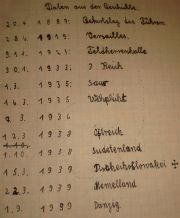 Daten aus der Geschichte.
20.4. 1889: Geburtstag des Führers
28. 1919: Versailles.
9.11. 1923: Feldherrenhalle
30.1. 1933: 3. Reich
1.3. 1935: Saar
1935: Wehrpflicht
12.3. 1938 Östreich
1.10. 1938 Sudetenland
15.3. 1939
1939 Memelland
1.9. 1939 Danzig.